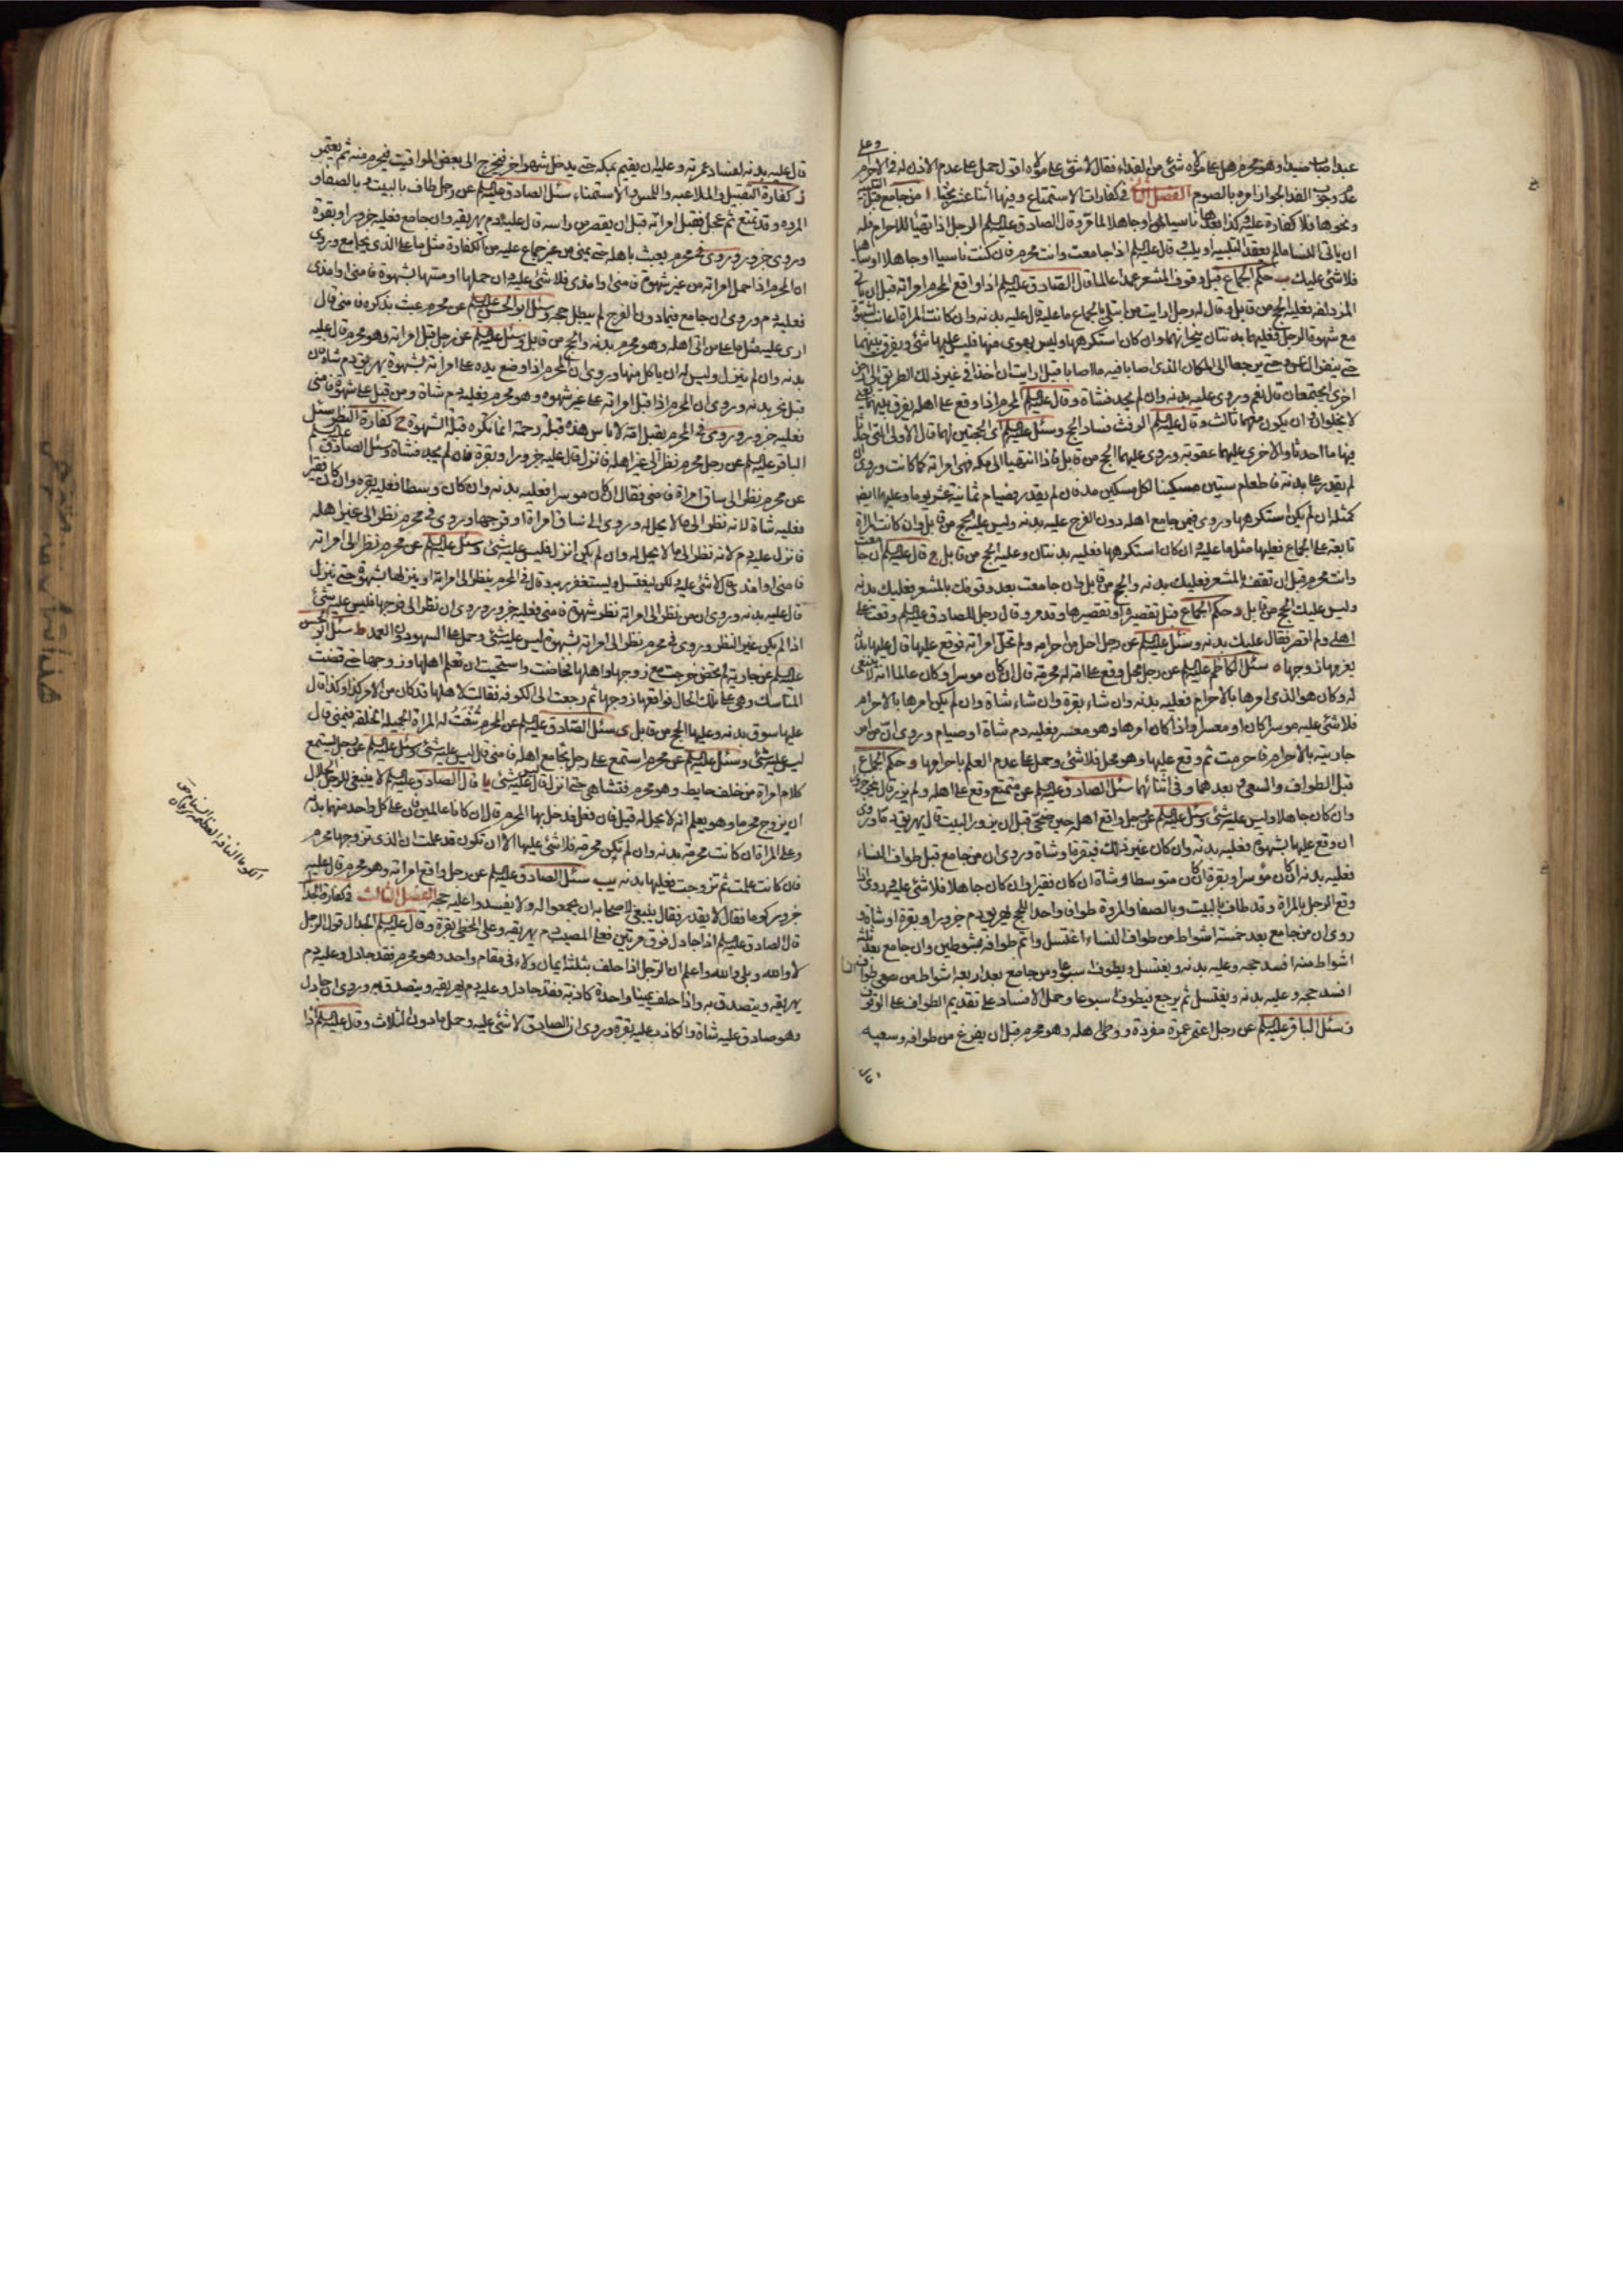 عبدا صاب صيدا وهو محرم هل على مولاه شئ من الفداء فقال لا شئ على مولاه اقول حمل على عدم الاذن له في الاحرام
وعلى
عدم وجوب الفدا لجواز امره بالصوم الفصل في كفارات الاستمتاع وفيها اثنا عشر بحثا ا من جامع قبل التلبية
ونحوها فلا كفارة عليه وكذا بعدها ناسيا او جاهلا لما مر وقال الصادق عليه السلم الرجل اذا تهيا للاحرام فله
ان ياتى النسا مالم يعقد التلبيه او يلب وقال عليه السلم اذا جامعت وانت محرم فان كنت ناسيا او جاهلا او ساهيا
فلا شئ عليك ب حكم الجماع قبل وقوف المشعر عمدا عالما قال الصادق عليه السلم اذا واقع المحرم امراته قبل ان ياتى
المزدلفه فعليه الحج من قابل وقال له رجل ارايت من ابتلى بالجماع ما عليه قال عليه بدنه وان كانت المراة اعانت بشهوة
مع شهوة الرجل فعليهما بدنتان ينحرانهما وان كان استكرهها وليس بهوى منها فليس عليها شئ ويفرق بينهما
حتى ينفر الناس وحتى يرجعا الى المكان الذى اصابا فيه ما اصابا قيل ارايت ان اخذا في غير ذلك الطريق الى ارض
اخرى ايجتمعان قال نعم وروى عليه بدنه وان لم يجد فشاة وقال عليه السلم المحرم اذا وقع على اهله يفرق بينهما يعنى
لا يخلوان الا ان يكون معهما ثالث وقال عليه السلم الرفث فساد الحج وسئل عليه السلم اى الحجتين لهما قال الاولى التى احدثا
فيها ما احدثا والاخرى عليهما عقوبة وروى عليهما الحج من قابل فاذا انتهيا الى مكه فهى امراته كما كانت وروى ان
لم يقدر على بدنة فاطعام ستين مسكينا لكل مسكين مد فان لم يقدر فصيام ثمانية عشر يوما وعليها ايضا
كمثله ان لم يكن استكرهها وروى فيمن جامع اهله دون الفرج عليه بدنه وليس عليه الحج من قابل وان كانت المراة
تابعته على الجماع فعليها مثل ما عليه وان كان استكرهها فعليه بدنتان وعليه الحج من قابل ج قال عليه السلم ان جامعت
وانت محرم قبل ان تقف بالمشعر فعليك بدنه والحج من قابل وان جامعت بعد وقوفك بالمشعر فعليك بدنه
وليس عليك الحج من قابل د حكم الجماع قبل تقصيره او تقصيرها وقد مر وقال رجل للصادق عليه السلم وقعت على
اهلى ولم اقصر فقال عليك بدنه وسئل عليه السلم عن رجل احل من احرامه ولم تحل امراته فوقع عليها قال عليها بدنة
يغرمها زوجها ه سئل الكاظم عليه السلم عن رجل محل وقع على امة له محرمة قال ان كان موسرا وكان عالما انه لا ينبغى
له وكان هو الذى امرها بالاحرام فعليه بدنه وان شاء بقرة وان شاء شاة وان لم يكن امرها بالاحرام
فلا شئ عليه موسرا كان او معسرا واذا كان امرها وهو معسر فعليه دم شاة او صيام وروى ان من امر
جاريته بالاحرام فاحرمت ثم وقع عليها وهو محل فلا شئ وحمل على عدم العلم باحرامها و حكم الجماع
قبل الطواف والسعى وبعدهما وفى اثنائهما سئل الصادق عليه السلم عن متمتع وقع على اهله ولم يزر قال ينحر جزورا
وان كان جاهلا وليس عليه شئ وسئل عليه السلم عن رجل واقع اهله حين ضحى قبل ان يزور البيت قال يهريق دما وروى
ان وقع عليها بشهوة فعليه بدنه وان كان غير ذلك فبقرة او شاة وروى ان من جامع قبل طواف النساء
فعليه بدنه ان كان موسرا وبقرة ان كان متوسطا وشاة ان كان فقيرا وان كان جاهلا فلا شئ عليه وروى اذا
وقع الرجل بالمراة وقد طاف بالبيت وبالصفا والمروة طوافا واحدا للحج يهريق دم جزور او بقرة او شاة
روى ان من جامع بعد خمسة اشواط من طواف النساء اغتسل واتم طوافه بشوطين وان جامع بعد ثلثة
اشواط منه افسد حجه وعليه بدنه ويغتسل ويطوف اسبوعا ومن جامع بعد اربعة اشواط من سعى طوافه
افسد حجه وعليه بدنه ويغتسل ثم يرجع فيطوف اسبوعا وحمل الافساد على تقديم الطواف على الوقوف
ز سئل الباقر عليه السلم عن رجل اعتمر عمرة مفردة ووطى اهله وهو محرم قبل ان يفرغ من طوافه وسعيه
قال عليه بدنه لفساد عمرته وعليه ان يقيم بمكه حتى يدخل شهر اخر فيخرج الى بعض المواقيت فيحرم منه ثم يعتمر
كفارة التقبيل والملاعبه واللمس والاستمناء سئل الصادق عليه السلم عن رجل طاف بالبيت وبالصفا و
المروه وقد تمتع ثم عجل فقبل امراته قبل ان يقصر من راسه قال عليه دم يهريقه وان جامع فعليه جزور او بقرة
وروى جزور وروى في محرم يعبث باهله حتى يمنى من غير جماع عليه من الكفارة مثل ما على الذى يجامع وروى
ان المحرم اذا حمل امراته من غير شهوة فامنى او امذى فلا شئ عليه وان حملها او مسها بشهوة فامنى او امذى
فعليه دم وروى ان جامع فيما دون الفرج لم يبطل حجه وسئل ابو الحسن عليه السلم عن محرم عبث بذكره فامنى قال
ارى عليه مثل ما على من اتى اهله وهو محرم بدنه والحج من قابل وسئل عليه السلم عن رجل قبل امراته وهو محرم قال عليه
بدنه وان لم ينزل وليس له ان ياكل منها وروى ان المحرم اذا وضع يده على امراته بشهوة يهريق دم شاة ومن
قبل نحر بدنه وروى ان المحرم اذا قبل امراته على غير شهوه وهو محرم فعليه دم شاة ومن قبل على شهوة فامنى
فعليه جزور وروى في المحرم يقبل امه لا باس هذه قبلة رحمة انما تكره قبلة الشهوة ح كفارة النظر سئل
الباقر عليه السلم عن رجل محرم نظر الى غير اهله فانزل قال عليه جزور او بقرة فان لم يجد فشاة وسئل الصادق عليه السلم
عن محرم نظر الى ساق امراة فامنى فقال ان كان موسرا فعليه بدنه وان كان وسطا فعليه بقره وان كان فقيرا
فعليه شاة لانه نظر الى ما لا يحل له وروى الى ساق امراة او فرجها وروى في محرم نظر الى غير اهله
فانزل عليه دم لانه نظر الى ما لا يحل له وان لم يكن انزل فليس عليه شئ وسئل عليه السلم عن محرم نظر الى امراته
فامنى او امذى قال لا شئ عليه ولكن ليغتسل ويستغفر ربه وقال في المحرم ينظر الى امراته او ينزلها بشهوة حتى ينزل
قال عليه بدنه وروى ان من نظر الى امراته نظر شهوة فامنى فعليه جزور وروى ان نظر الى فرجها فليس عليه شئ
اذا لم يكن غير النظر وروى في محرم نظر الى امراته بشهوة ليس عليه شئ وحمل على السهو دون العمد ط سئل ابو الحسن
عليه السلم عن جارية لم تحض خرجت مع زوجها واهلها فحاضت واستحيت ان تعلم اهلها وزوجها حتى قضت
المناسك وهى على تلك الحال فواقعها زوجها ثم رجعت الى الكوفه فقالت لاهلها قد كان من الامر كذا وكذا قال
عليها سوق بدنه وعليها الحج من قابل ى سئل الصادق عليه السلم عن المحرم تنعت له المراة الجميلة الخلقه فيمنى قال
ليس عليه شئ وسئل عليه السلم عن محرم استمع على رجل يجامع اهله فامنى قال ليس عليه شئ وسئل عليه السلم عن رجل يستمع
كلام امراة من خلف حايط وهو محرم فتشاهى حتى انزل قال ليس عليه شئ يا قال الصادق عليه السلم لا ينبغى للرجل الحلال
ان يزوج محرما وهو يعلم انه لا يحل له قيل فان فعل فدخل بها المحرم قال ان كانا عالمين فان على كل واحد منهما بدنة
وعلى المراة ان كانت محرمة بدنه وان لم تكن محرمة فلا شئ عليها الا ان تكون قد علمت ان الذى تزوجها محرم
فان كانت علمت ثم تزوجت فعليها بدنه يب سئل الصادق عليه السلم عن رجل واقع امراته وهو محرم قال عليه
جزور كوما فقال لا يقدر فقال ينبغى لاصحابه ان يجمعوا له ولا يفسدوا عليه حجه الفصل الثالث في كفارة الجدال
قال الصادق عليه السلم اذا جادل فوق مرتين فعلى المصيب دم يهريقه وعلى المخطى بقرة وقال عليه السلم الجدال قول الرجل
لا والله وبلى والله واعلم ان الرجل اذا حلف بثلثة ايمان ولاء في مقام واحد وهو محرم فقد جادل وعليه دم
يهريقه ويتصدق به واذا حلف يمينا واحدة كاذبة فقد جادل وعليه دم يهريقه ويتصدق به وروى ان جادل
وهو صادق عليه شاة والكاذب عليه بقرة وروى ان الصادق لا شئ عليه وحمل ما دون الثلاث وقال عليه السلم اذا
الكوما الناقة العظيمة السنام